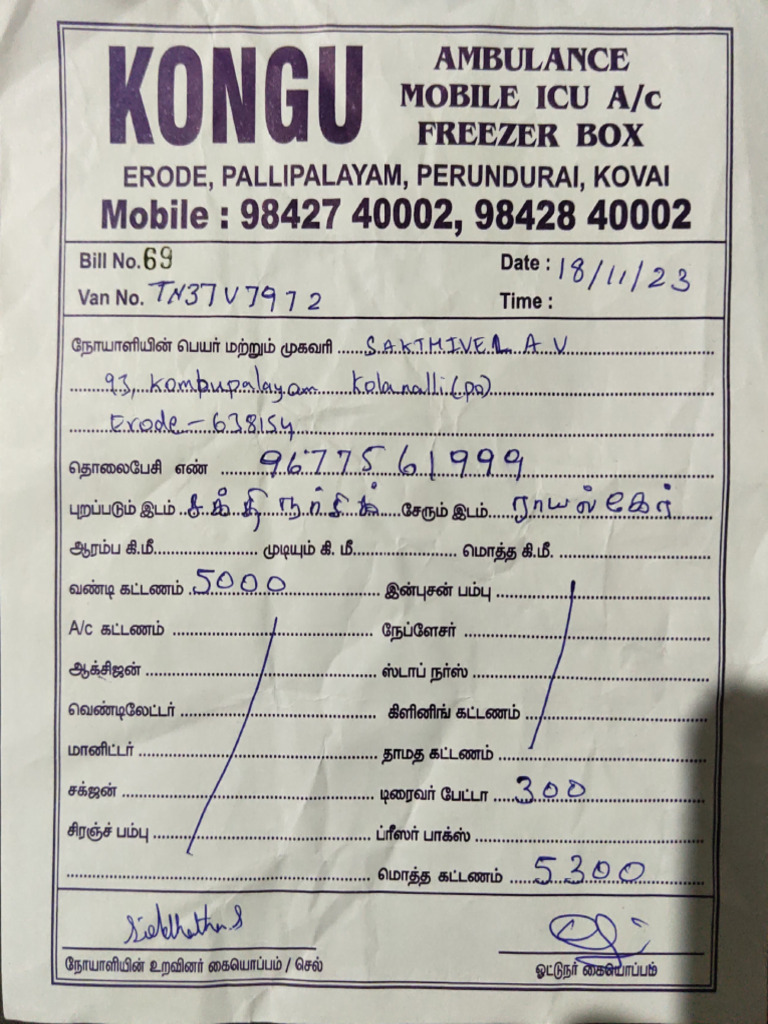 KONGU
AMBULANCE
MOBILE ICU A/c
FREEZER BOX
ERODE, PALLIPALAYAM, PERUNDURAI, KOVAI
Mobile : 98427 40002, 98428 40002
Bill No. 69 Date : 18/11/23
Van No. TN37V7972 Time :
நோயாளியின் பெயர் மற்றும் முகவரி SAKTHIVEL A V
93, Kombupalayam Kolanalli (po)
Erode - 638154
தொலைபேசி எண் 9677561999
புறப்படும் இடம் சக்தி நர்சிங் சேரும் இடம் ராயல்கேர்
ஆரம்ப கி.மீ. முடியும் கி. மீ. மொத்த கி.மீ.
வண்டி கட்டணம் 5000 இன்புசன் பம்பு
A/c கட்டணம் நேப்ளேசர்
ஆக்சிஜன் ஸ்டாப் நர்ஸ்
வெண்டிலேட்டர் கிளினிங் கட்டணம்
மானிட்டர் தாமத கட்டணம்
சக்ஜன் டிரைவர் பேட்டா 300
சிரஞ்ச் பம்பு ப்ரீஸர் பாக்ஸ்
மொத்த கட்டணம் 5300
நோயாளியின் உறவினர் கையொப்பம் / செல் ஓட்டுநர் கையொப்பம்